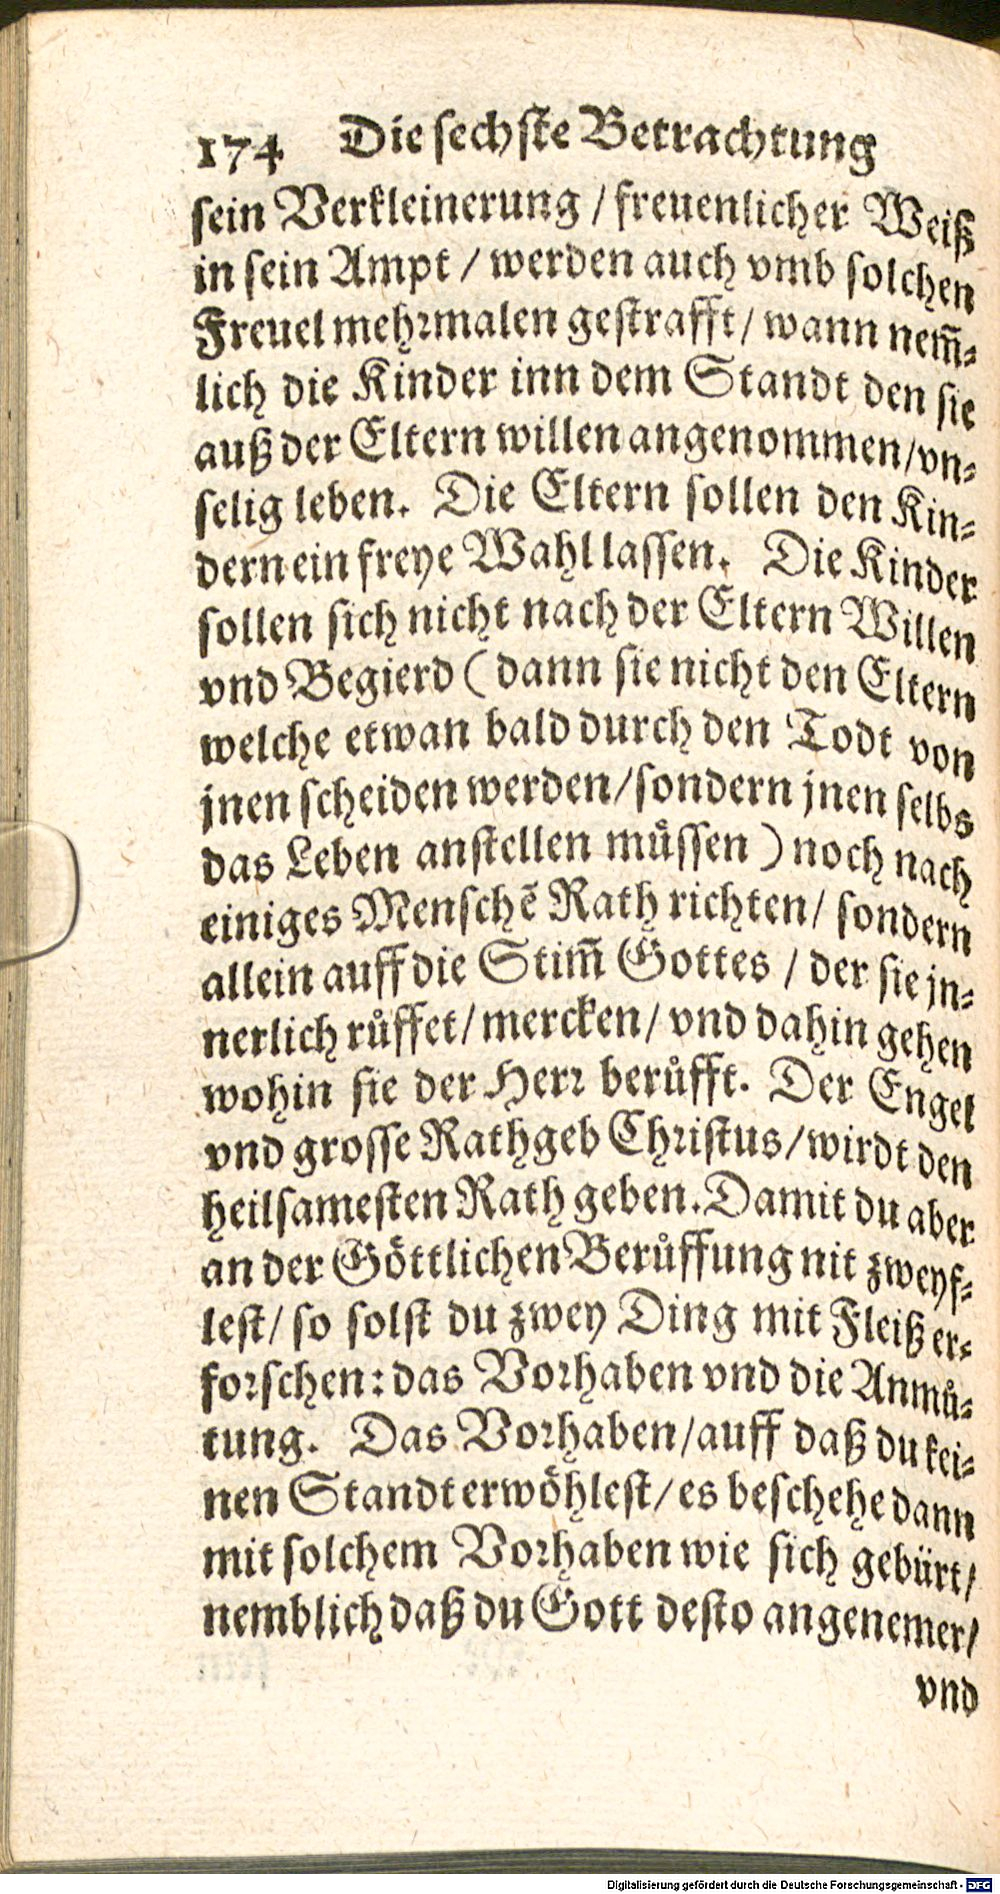 174 Die sechste Betrachtung
sein Verkleinerung / freuenlicher Weiß
in sein Ampt / werden auch vmb solchen
Freuel mehrmalen gestrafft / wann nem̄-
lich die Kinder inn dem Standt den sie
auß der Eltern willen angenommen / vn-
selig leben. Die Eltern sollen den Kin-
dern ein freye Wahl lassen. Die Kinder
sollen sich nicht nach der Eltern Willen
vnd Begierd ( dann sie nicht den Eltern
welche etwan bald durch den Todt von
jnen scheiden werden / sondern jnen selbs
das Leben anstellen müssen ) noch nach
einiges Menschē Rath richten / sondern
allein auff die Stim̄ Gottes / der sie jn-
nerlich rüffet / mercken / vnd dahin gehen
wohin sie der Herr berüfft. Der Engel
vnd grosse Rathgeb Christus / wirdt den
heilsamesten Rath geben. Damit du aber
an der Göttlichen Berüffung nit zweyf-
lest / so solst du zwey Ding mit Fleiß er-
forschen: das Vorhaben vnd die Anmü-
tung. Das Vorhaben / auff daß du kei-
nen Standt erwöhlest / es beschehe dann
mit solchem Vorhaben wie sich gebürt /
nemblich daß du Gott desto angenemer /
vnd
Digitalisierung gefördert durch die Deutsche Forschungsgemeinschaft - DFG